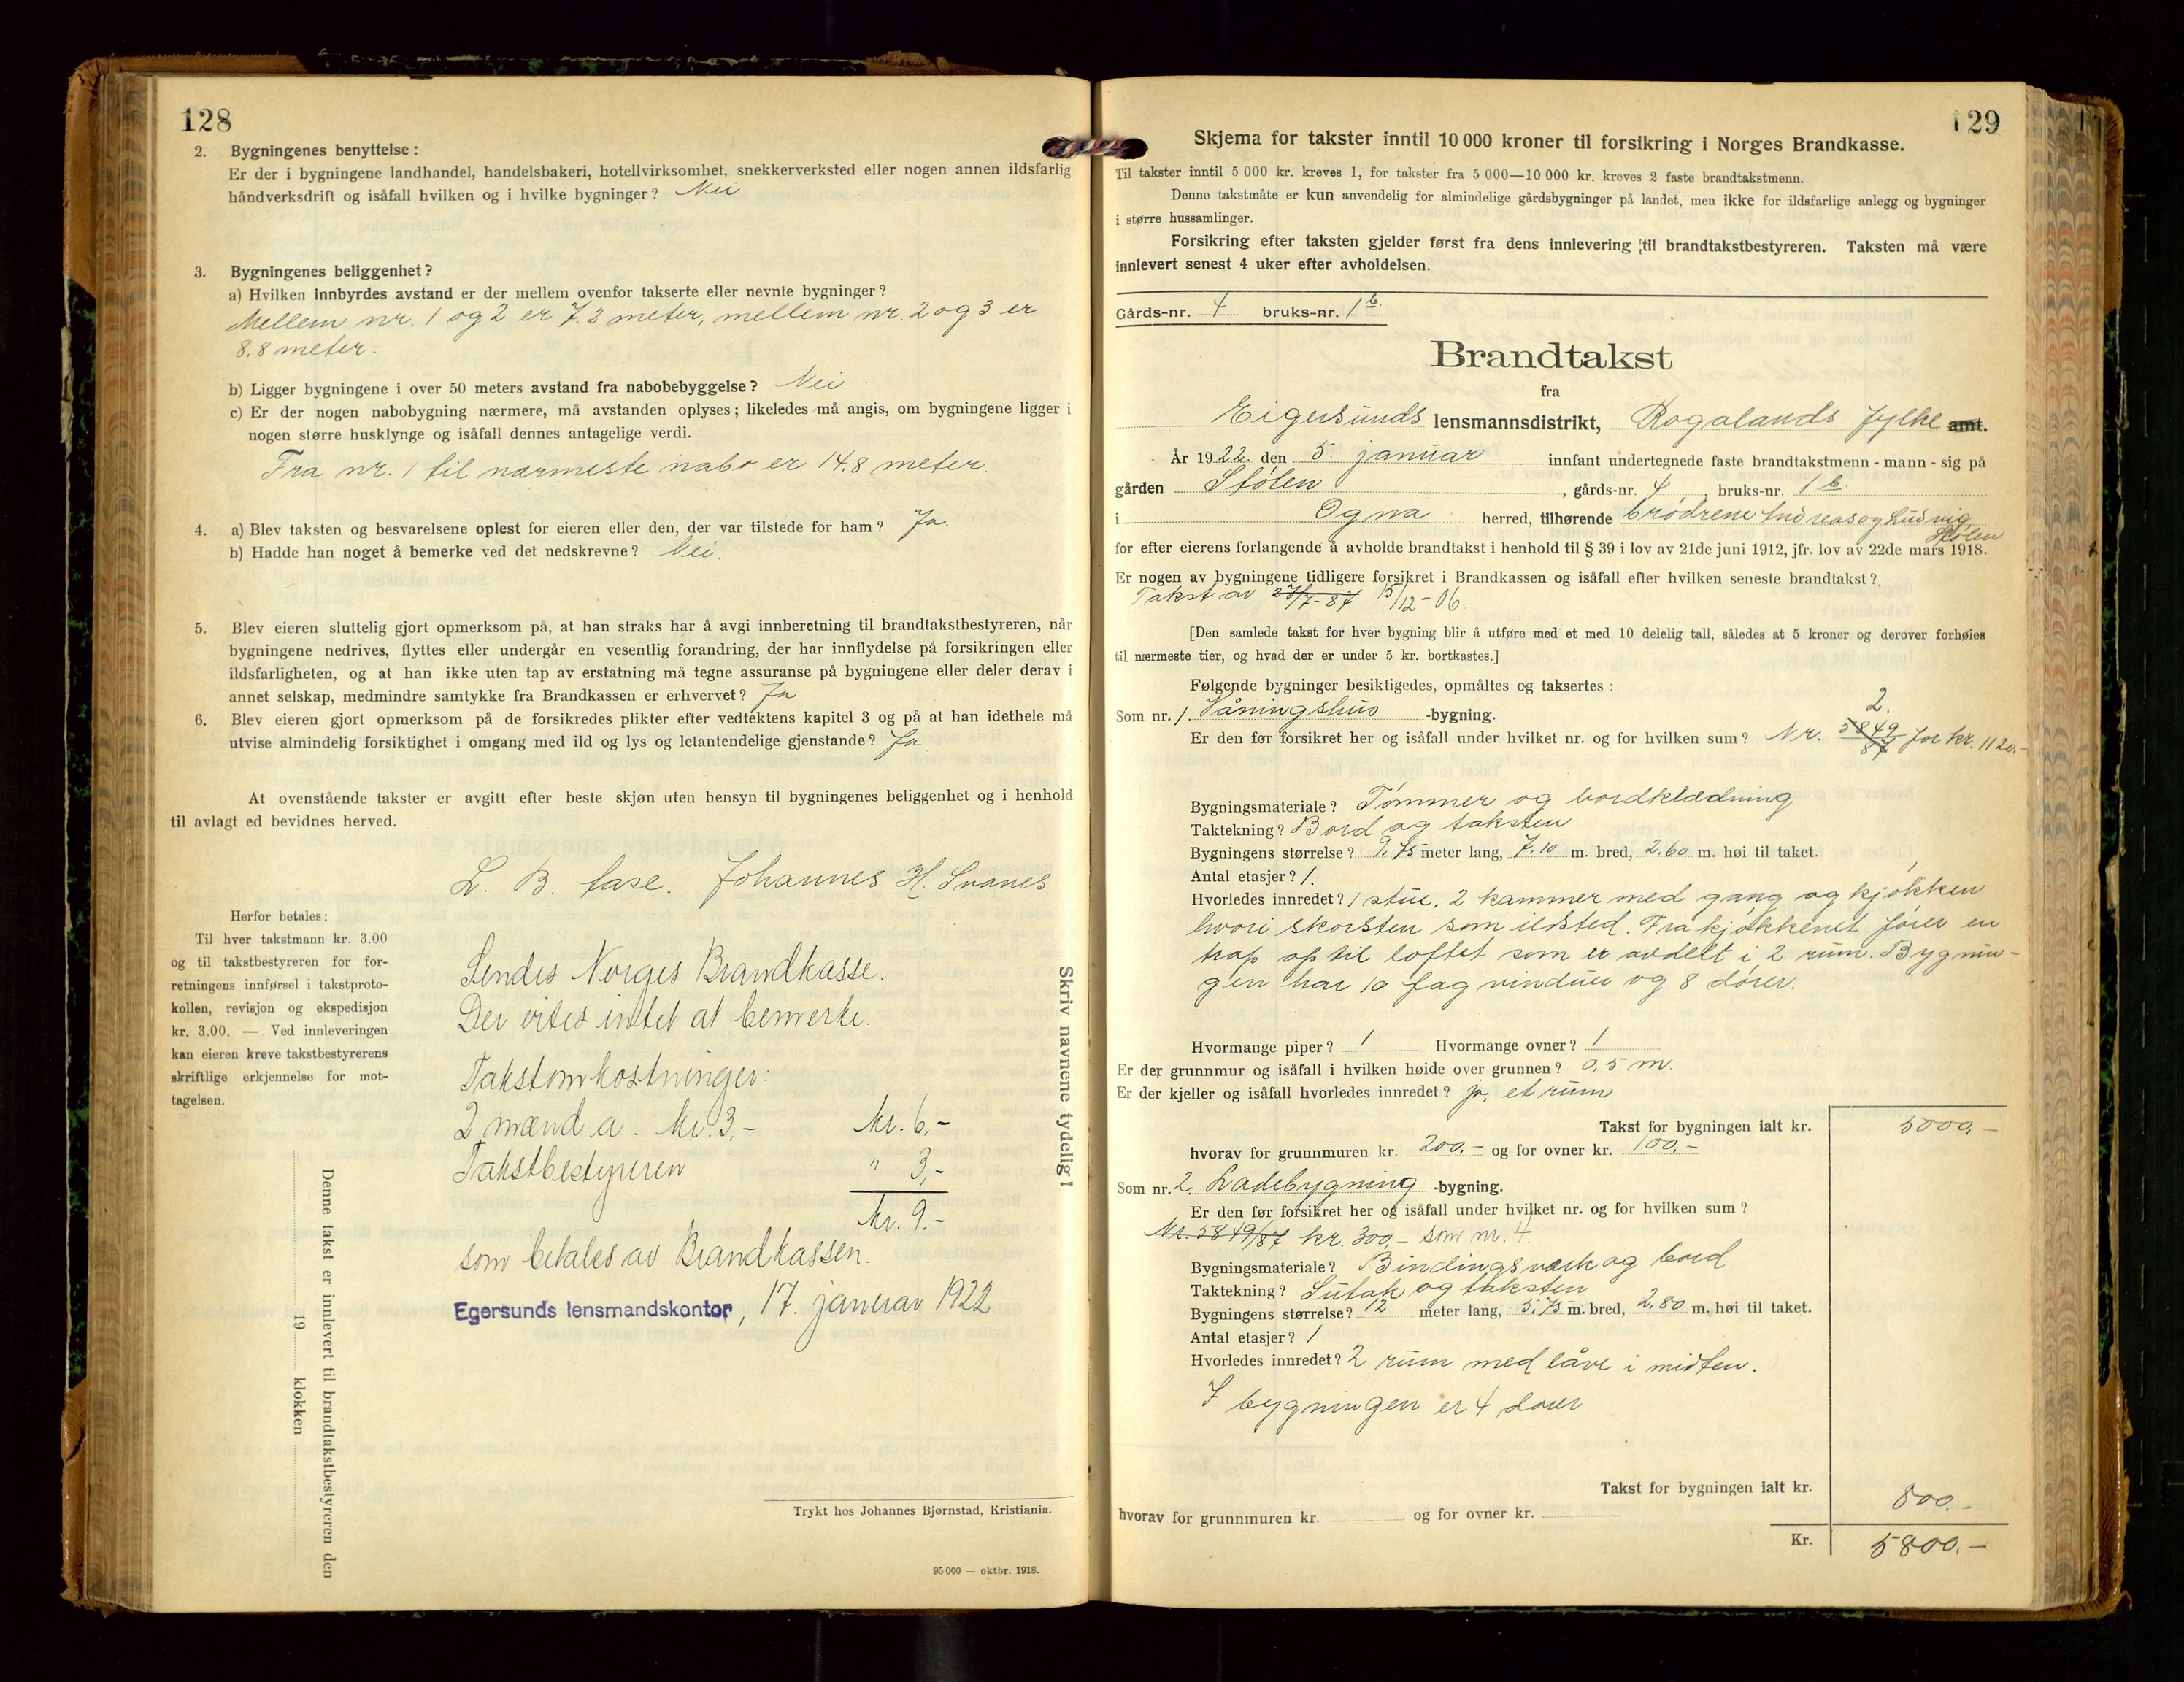 128
2. Bygningenes benyttelse:
Er der i bygningene landhandel, handelsbakeri, hotellvirksomhet, snekkerverksted eller nogen annen ildsfarlig
håndverksdrift og isåfall hvilken og i hvilke bygninger? Nei
3. Bygningenes beliggenhet?
a) Hvilken innbyrdes avstand er der mellem ovenfor takserte eller nevnte bygninger?
Mellem nr. 1 og 2 er 7.2 meter, mellem nr. 2 og 3 er
8.8 meter.
b) Ligger bygningene i over 50 meters avstand fra nabobebyggelse? Nei
c) Er der nogen nabobygning nærmere, må avstanden oplyses; likeledes må angis, om bygningene ligger i
nogen større husklynge og isåfall dennes antagelige verdi.
Fra nr. 1 til nærmeste nabo er 14,8 meter.
4. a) Blev taksten og besvarelsene oplest for eieren eller den, der var tilstede for ham? Ja.
b) Hadde han noget å bemerke ved det nedskrevne? Nei.
5. Blev eieren sluttelig gjort opmerksom på, at han straks har å avgi innberetning til brandtakstbestyreren, når
bygningene nedrives, flyttes eller undergår en vesentlig forandring, der har innflydelse på forsikringen eller
ildsfarligheten, og at han ikke uten tap av erstatning må tegne assuranse på bygningene eller deler derav i
annet selskap, medmindre samtykke fra Brandkassen er erhvervet? Ja
6. Blev eieren gjort opmerksom på de forsikredes plikter efter vedtektens kapitel 3 og på at han idethele må
utvise almindelig forsiktighet i omgang med ild og lys og letantendelige gjenstande? Ja
At ovenstående takster er avgitt efter beste skjøn uten hensyn til bygningenes beliggenhet og i henhold
til avlagt ed bevidnes herved.
L. B. Aase. Johannes H. Svanes
Herfor betales:
Til hver takstmann kr. 3.00
og til takstbestyreren for for-
retningens innførsel i takstproto-
kollen, revisjon og ekspedisjon
kr. 3.00. — Ved innleveringen
kan eieren kreve takstbestyrerens
skriftlige erkjennelse for mot-
tagelsen.
Sendes Norges Brandkasse.
Der vites intet at bemerke.
Takstomkostninger:
2 mænd a. kr. 3,- Kr. 6,-
Takstbestyreren " 3,-
Kr. 9.-
som betales av Brandkassen.
Egersunds lensmandskontor, 17. januar 1922
Skriv navnene tydelig!
Denne takst er innlevert til brandtakstbestyreren den
19 klokken
Trykt hos Johannes Bjørnstad, Kristiania.
95 000 — oktbr. 1918.
129
Skjema for takster inntil 10 000 kroner til forsikring i Norges Brandkasse.
Til takster inntil 5 000 kr. kreves 1, for takster fra 5 000—10 000 kr. kreves 2 faste brandtakstmenn.
Denne takstmåte er kun anvendelig for almindelige gårdsbygninger på landet, men ikke for ildsfarlige anlegg og bygninger
i større hussamlinger.
Forsikring efter taksten gjelder først fra dens innlevering til brandtakstbestyreren. Taksten må være
innlevert senest 4 uker efter avholdelsen.
Gårds-nr. 4 bruks-nr. 1 b.
Brandtakst
fra
Eigersunds lensmannsdistrikt, Rogalands fylke amt.
År 1922. den 5. januar innfant undertegnede faste brandtakstmenn - mann - sig på
gården Stølen, gårds-nr. 4, bruks-nr. 1 b.
i Ogna herred, tilhørende brødrene Andreas og Ludvig
Stølen
for efter eierens forlangende å avholde brandtakst i henhold til § 39 i lov av 21de juni 1912, jfr. lov av 22de mars 1918.
Er nogen av bygningene tidligere forsikret i Brandkassen og isåfall efter hvilken seneste brandtakst?
Takst av 27/7-87 15/12-06
[Den samlede takst for hver bygning blir å utføre med et med 10 delelig tall, således at 5 kroner og derover forhøies
til nærmeste tier, og hvad der er under 5 kr. bortkastes.]
Følgende bygninger besiktigedes, opmåltes og taksertes:
Som nr. 1. Våningshus -bygning. 2.
Er den før forsikret her og isåfall under hvilket nr. og for hvilken sum? Nr. 5849/87 for kr. 1120.-
Bygningsmateriale? Tømmer og bordklædning
Taktekning? Bord og taksten
Bygningens størrelse? 9.75 meter lang, 7.10 m. bred, 2.60 m. høi til taket.
Antal etasjer? 1.
Hvorledes innredet? 1 stue, 2 kammer med gang og kjøkken
hvori skorsten som ildsted. Fra kjøkkenet fører en
trap op til loftet som er avdelt i 2 rum. Bygnin-
gen har 10 fag vinduer og 8 dører.
Hvormange piper? 1 Hvormange ovner? 1
Er der grunnmur og isåfall i hvilken høide over grunnen? 0,5 m.
Er der kjeller og isåfall hvorledes innredet? ja, et rum
Takst for bygningen ialt kr. 5000.-
hvorav for grunnmuren kr. 200.- og for ovner kr. 100.-
Som nr. 2. Ladebygning -bygning.
Er den før forsikret her og isåfall under hvilket nr. og for hvilken sum?
Nr. 5849/87 kr. 300,- som nr. 4.
Bygningsmateriale? Bindingsverk og bord
Taktekning? Sutak og taksten
Bygningens størrelse? 12 meter lang, 5.75 m. bred, 2.80 m. høi til taket.
Antal etasjer? 1
Hvorledes innredet? 2 rum med låve i midten.
I bygningen er 4 dører
Takst for bygningen ialt kr. 800.-
hvorav for grunnmuren kr. og for ovner kr.
Kr. 5800.-